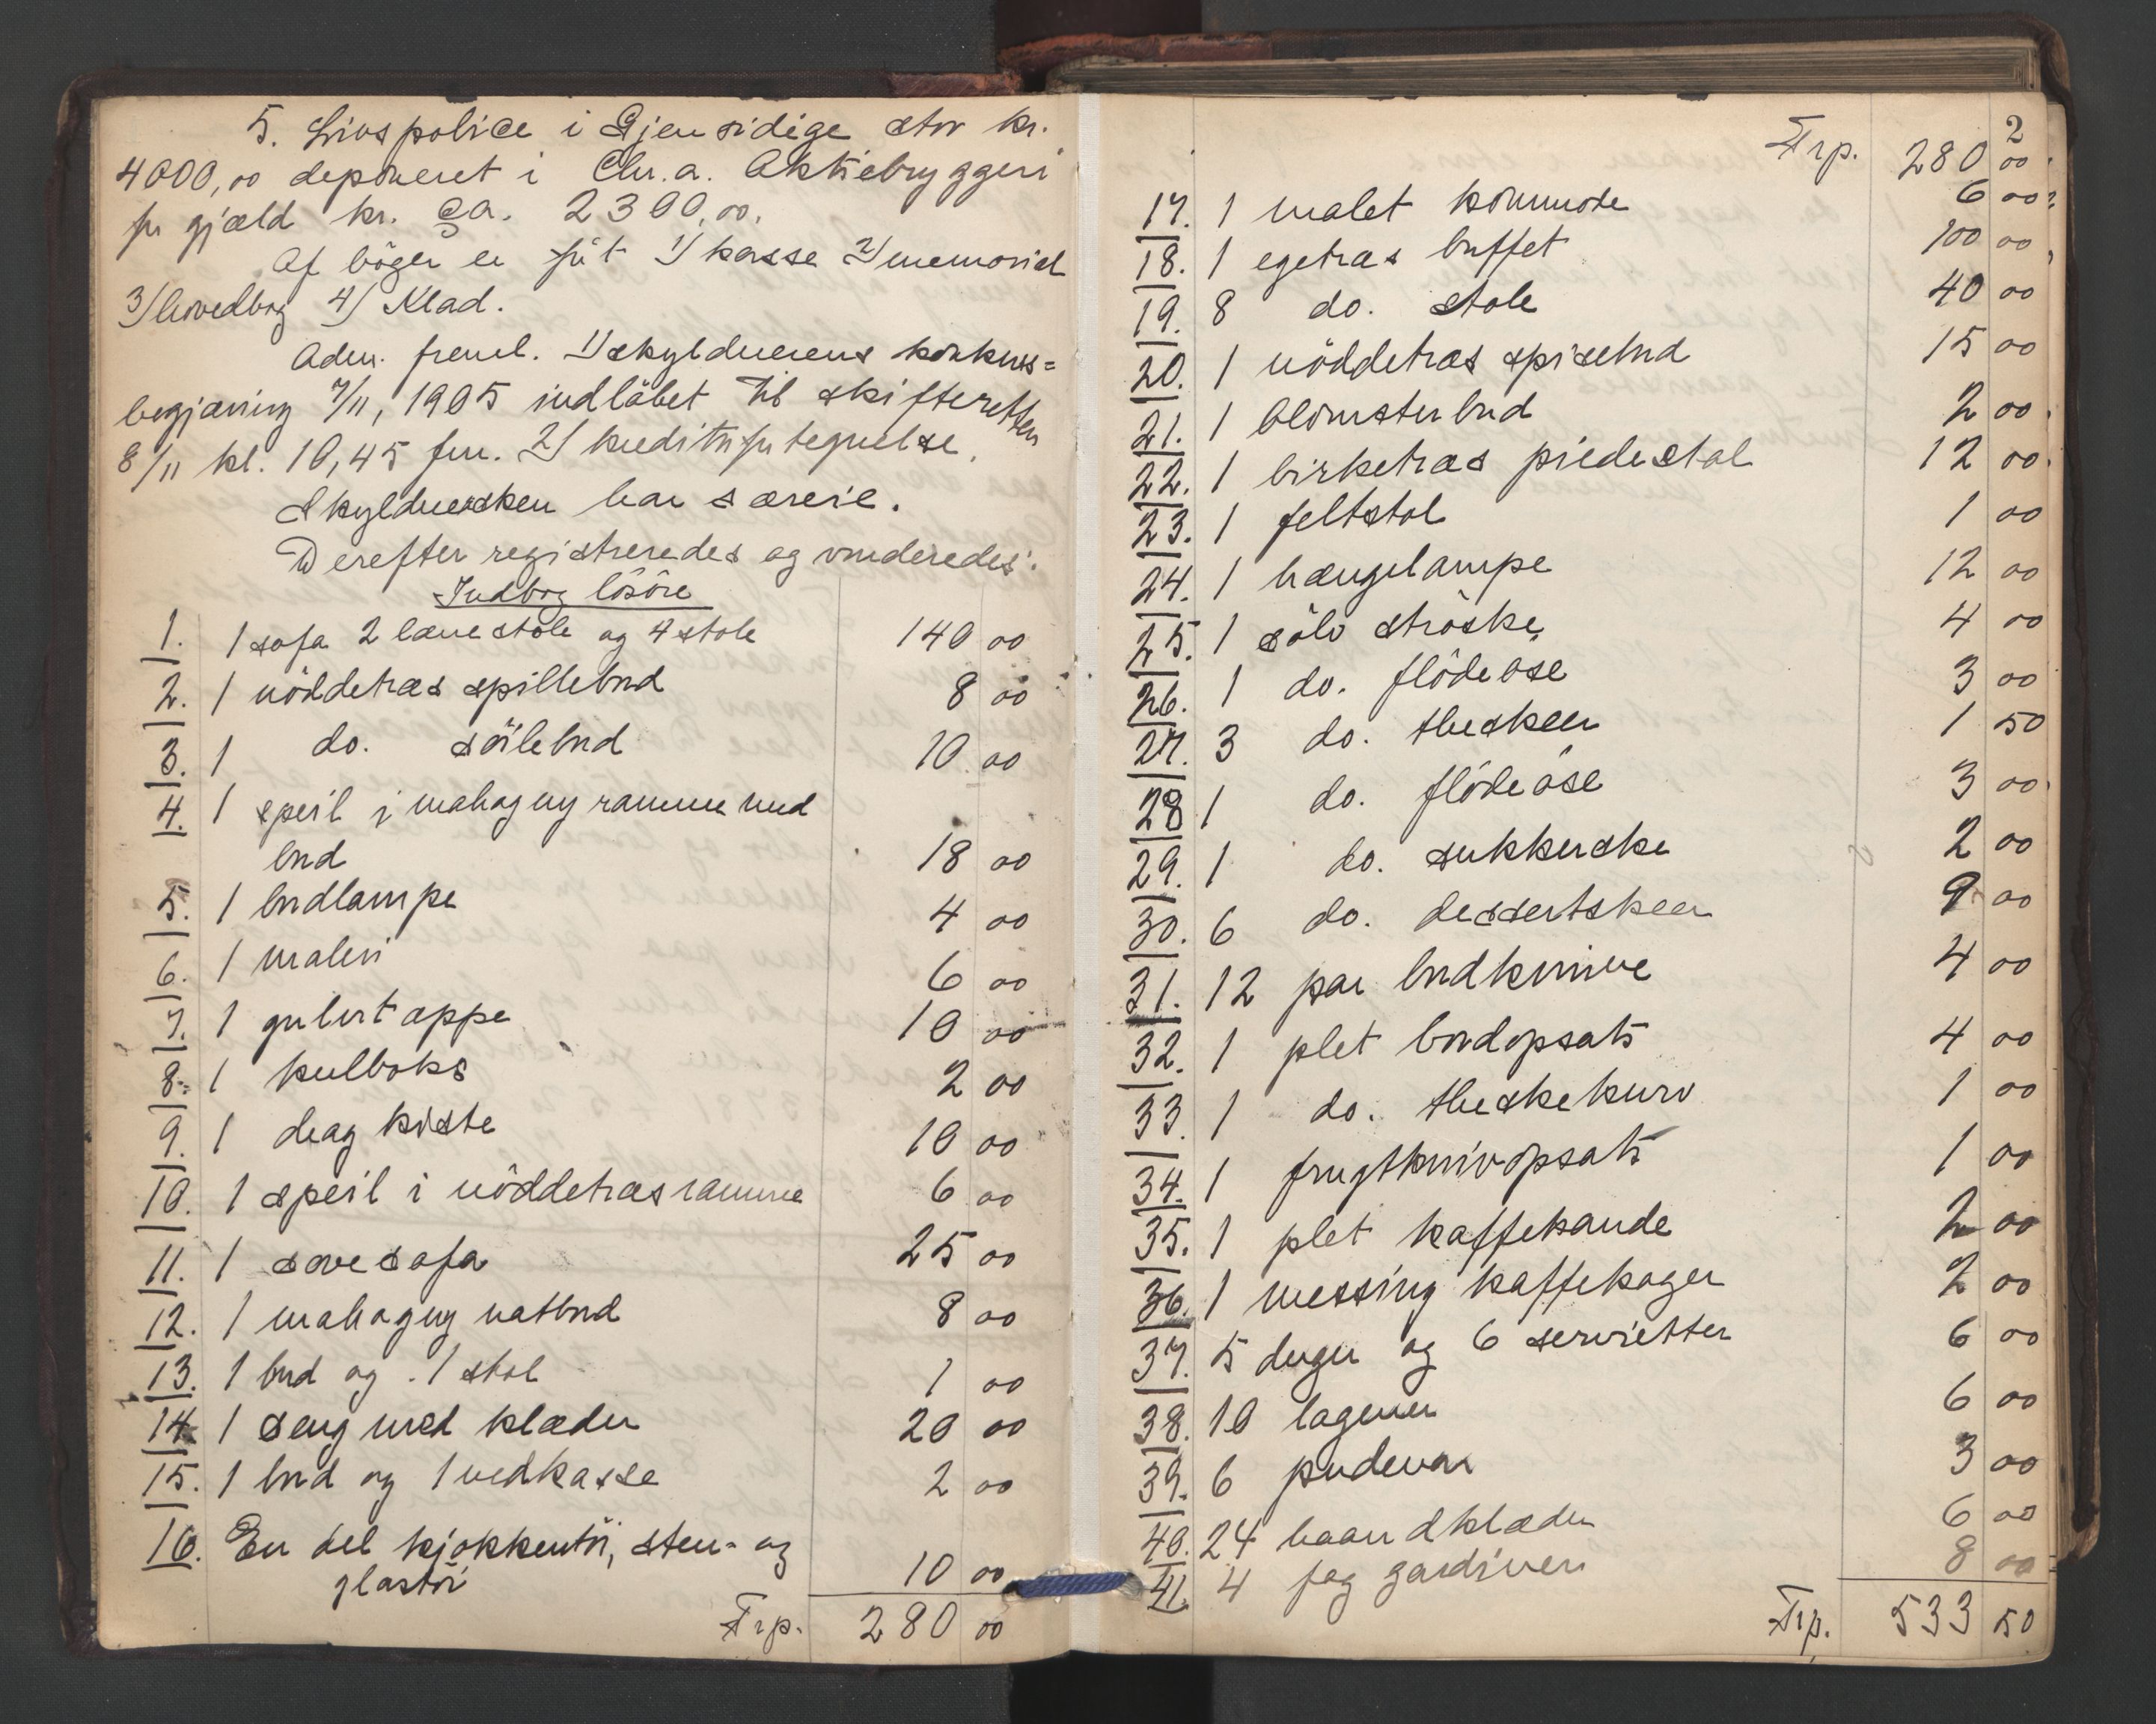 5. Livspolice i Gjensidige stor kr.
4000,00 deponeret i Chr.a. Aktiebryggeri
for gjæld kr. ca. 2300,00.
Af bøger er ført 1) kasse 2) memorial
3) hovedbog 4) Klad.
Adm. freml. 1) skyldnerens konkurs=
begjæring 7/11, 1905 indløbet til skifteretten
8/11 kl. 10,45 fm. 2) kreditorfortegnelse.
Skyldnersken har særeie.
Derefter registreredes og vurderedes:
Indbog løsøre
1. 1 sofa 2 lænestole og 4 stole 140 00
2. 1 nøddetræs spillebord 8 00
3. 1 do. söilebord 10 00
4. 1 speil i mahogny ramme med
bord 18 00
5. 1 bordlampe 4 00
6. 1 maleri 6 00
7. 1 gulvtæppe 10 00
8. 1 kulboks 2 00
9. 1 dragkiste 10 00
10. 1 speil i nøddetræsramme 6 00
11. 1 sovesofa 25 00
12. 1 mahogny natbord 8 00
13. 1 bord og 1 stol 1 00
14. 1 seng med klæder 20 00
15. 1 bord og 1 vedkasse 2 00
16. En del kjøkkentöi, sten- og
glastöi 10 00
Trp. 280 00
2
Trp. 280 00
17. 1 malet kommode 6 00
18. 1 egetræs buffet 100 00
19. 8 do. stole 40 00
20. 1 nøddetræs spisebord 15 00
21. 1 blomsterbord 2 00
22. 1 birketræs piedestal 12 00
23. 1 feltstol 1 00
24. 1 hængelampe 12 00
25. 1 sølv strøske 4 00
26. 1 do. flødeøse 3 00
27. 3 do. theskeer 1 50
28 1 do. flødeøse 3 00
29. 1 do. sukkerske 2 00
30. 6 do. dessertskeer 9 00
31. 12 par bordknive 4 00
32. 1 plet bordopsats 4 00
33. 1 do. theskekurv 1 00
34. 1 frugtknivopsats 1 00
35. 1 plet kaffekande 2 00
36. 1 messing kaffekoger 2 00
37. 5 duger og 6 servietter 6 00
38. 10 lagener 6 00
39. 6 pudevar 3 00
40. 24 haandklæder 6 00
41. 4 fag gardiner 8 00
Trp. 533 50